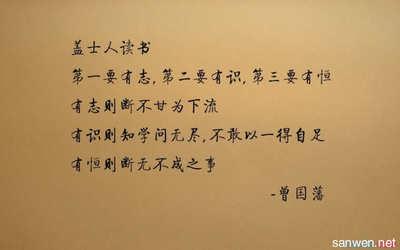 盖士人读书
第一要有志,第二要有识,第三要有恒
有志则断不甘为下流
有识则知学问无尽,不敢以一得自足
有恒则断无不成之事
-曾国藩
sanwen.net